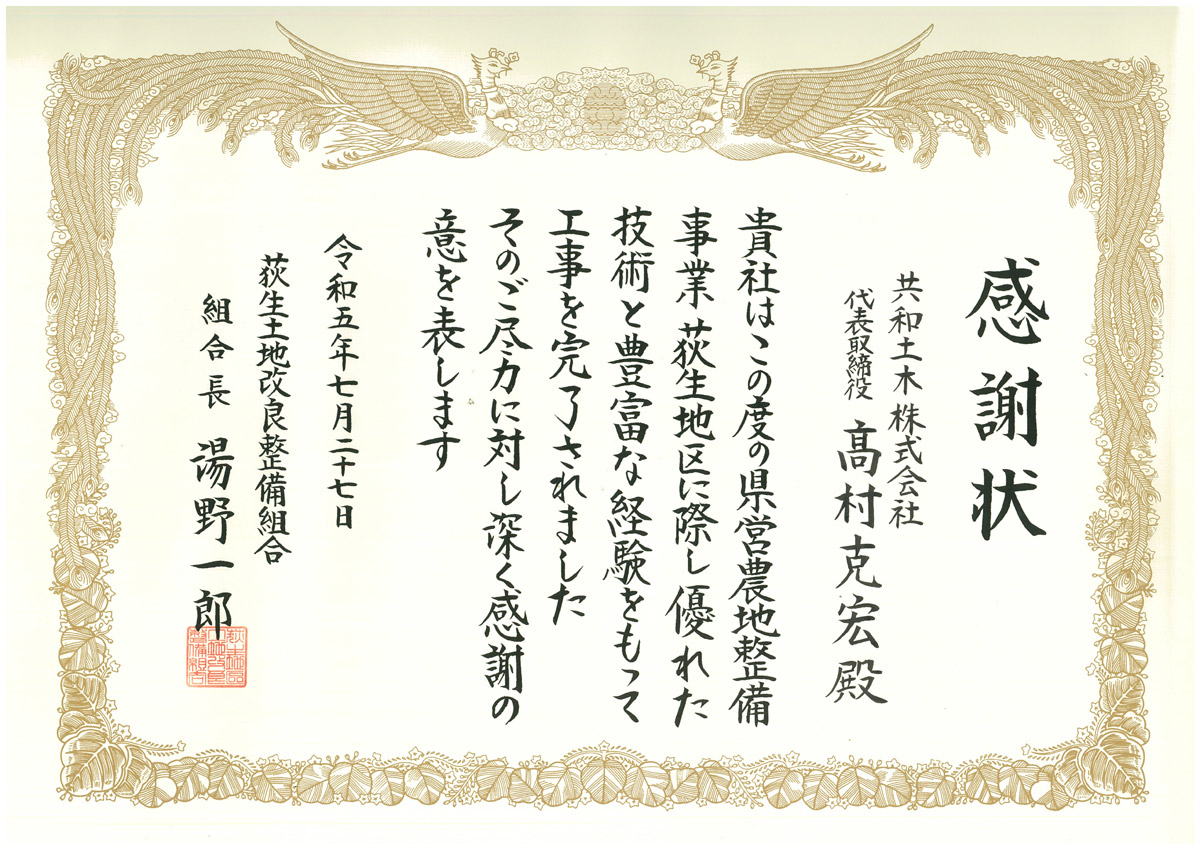 感謝状
共和土木株式会社
代表取締役 髙村克宏殿
貴社はこの度の県営農地整備
事業荻生地区に際し優れた
技術と豊富な経験をもって
工事を完了されました
そのご尽力に対し深く感謝の
意を表します
令和五年七月二十七日
荻生土地改良整備組合
組合長 湯野一郎